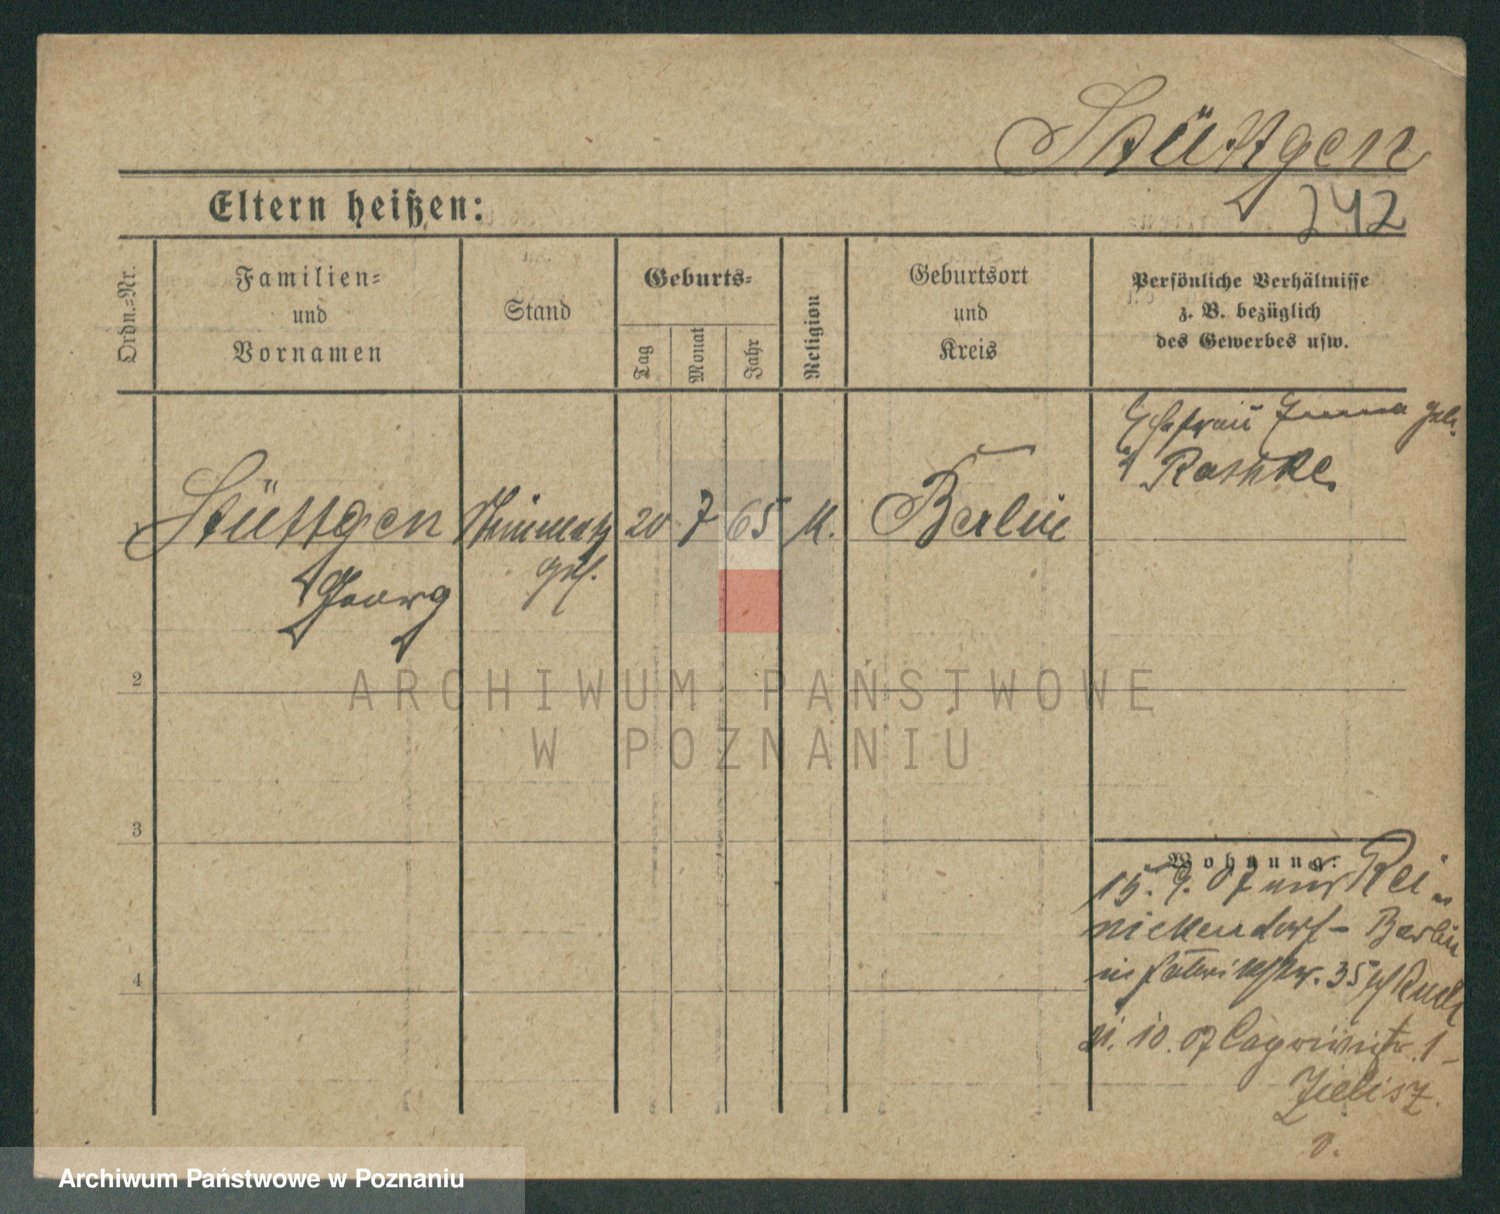 Stüttgen
242
Eltern heißen:
Ordn.=Nr.
Familien=
und
Vornamen
Stand
Geburts=
Tag
Monat
Jahr
Religion
Geburtsort
und
Kreis
Persönliche Verhältnisse
z. B. bezüglich
des Gewerbes usw.
Ehefrau Emma geb.
Stüttgen
20 7 65
Berlin
Georg
2
3
4
Wohnung:
15. 9. 07 Rei-
nickendorf - Berlin
35
10. 07
ARCHIWUM PAŃSTWOWE
W POZNANIU
Archiwum Państwowe w Poznaniu